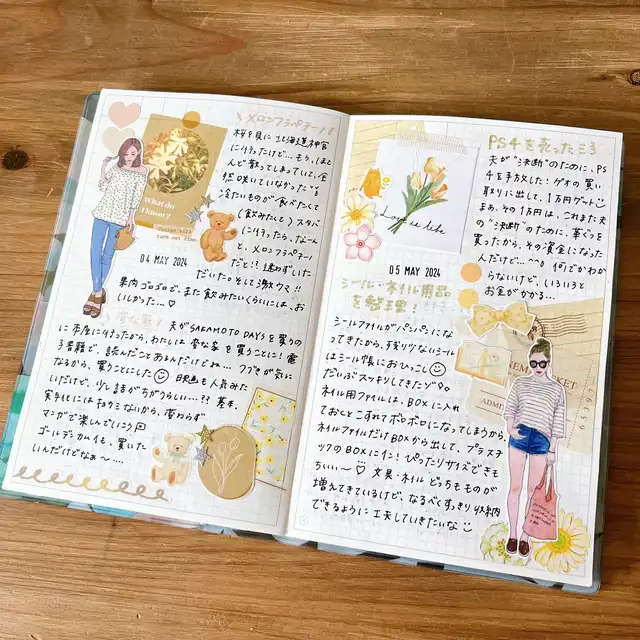 メロンフラペチーノ!!
桜を見に北海道神宮
に行ったけど…もう、ほと
んど散ってしまっていて、全
然咲いていなかった
冷たいものが食べたくて
(飲みたいと)スタバ
に行ったら、なーん
と、メロンフラペチーノ
だと!? 迷わずいた
だいた そして激ウマ!!
What do
I know?
THINGS WILL
TURN OUT FINE
04 MAY 2024
果肉ゴロゴロで、また飲みたいくらいには、お
いしかった…♡
変な家!
夫がSAKAMOTO DAYSを買うの
に本屋に行ったから、わたしは変な家を買うことに!電
子書籍で、読んだことあるんだけどね… つづきが気に
なるから、買うことにした 映画も人気みた
いだけど、少し話がちがうらしい…?? 基本、
実写には和クミないから、変わらず
マンガで楽しんでいこう
ゴールデンカムイも、買いた
いんだけどなぁ〜…
PS4を売ったころ
夫が"決断"のために、PS
4を手放した!ゲオの買い
取りに出して、1万円ゲット
まぁ、その1万円は、これまた夫
の"決断"のために、革ぐつを
買ったから、その資金になった
んだけど…^^ 何でかわか
らないけど、いろいろと
お金がかかる…
05 MAY 2024
シール・ネイル用品
を整理!
シールファイルがパンパンにな
ってきたから、残り少ないシール
はシール帳におひっこし
だいぶスッキリしてきたゾ
ネイル用ファイルは、BOXに入れ
ておくとこすれてボロボロになってしまうから、
ネイルファイルだけBOXから出して、プラスチ
ックのBOXにイン!ぴったりサイズでき
もちいい〜♡ 文具・ネイルどっちもものが
増えてきているけど、なるべくすっきり収納
できるように工夫していきたいな